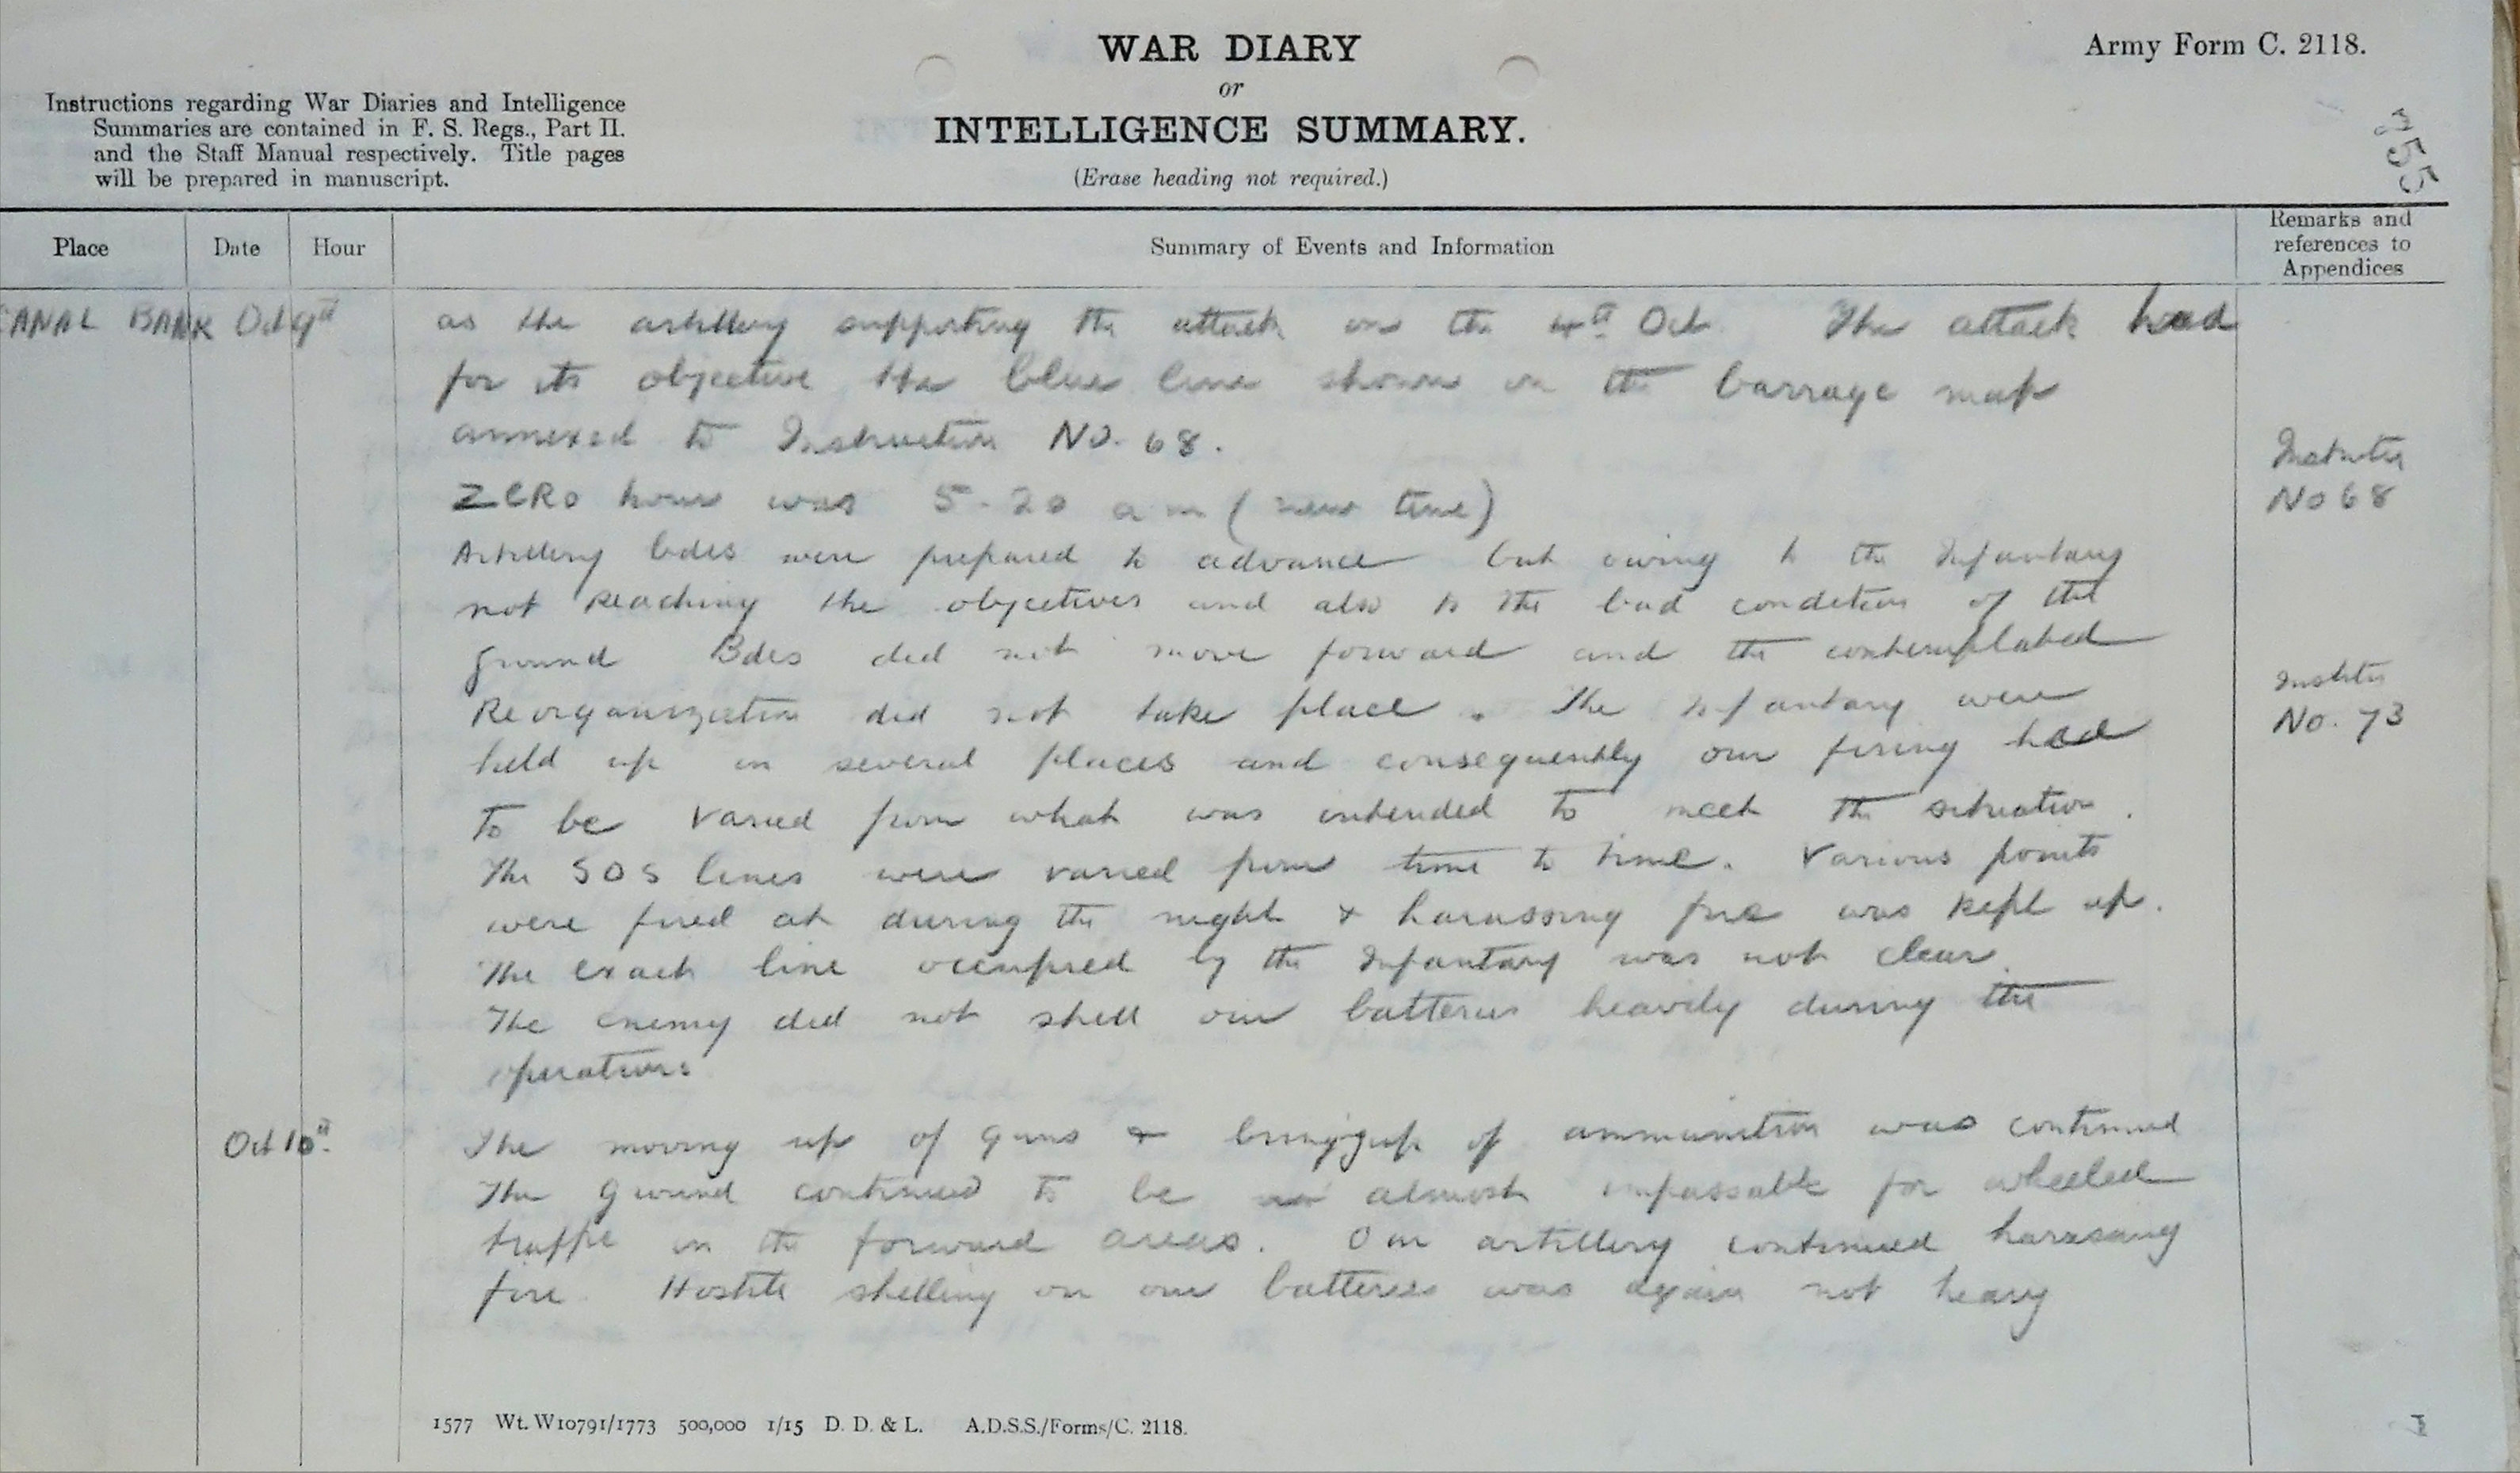 WAR DIARY
or
INTELLIGENCE SUMMARY.
(Erase heading not required.)
Army Form C. 2118.
Instructions regarding War Diaries and Intelligence
Summaries are contained in F. S. Regs., Part II.
and the Staff Manual respectively. Title pages
will be prepared in manuscript.
255
Place Date Hour Summary of Events and Information
Remarks and
references to
Appendices
CANAL BANK Oct 9th as the artillery supporting the attack on the 4th Oct. The attack had
for its objective the blue line shown in the barrage map
annexed to Instruction No. 68.
Instruction
No 68
ZERO hour was 5-20 am (new time)
Artillery bdes were prepared to advance but owing to the Infantary
not reaching the objectives and also to the bad condition of the
ground Bdes did not move forward and the contemplated
Reorganization did not take place. The Infantary were
Instctn
No. 73
held up in several places and consequently our firing had
to be varied from what was intended to meet the situation.
The SOS lines were varied from time to time. Various points
were fired at during the night & harassing fire was kept up.
The exact line occupied by the Infantary was not clear.
The enemy did not shell our batteries heavily during the
operations
Oct 10th. The moving up of guns & bringing up of ammunition was continued
The ground continued to be almost impassable for wheeled
traffic in the forward areas. Our artillery continued harassing
fire. Hostile shelling on our batteries was again not heavy
1577 Wt. W10791/1773 500,000 1/15 D. D. & L. A.D.S.S./Forms/C. 2118.